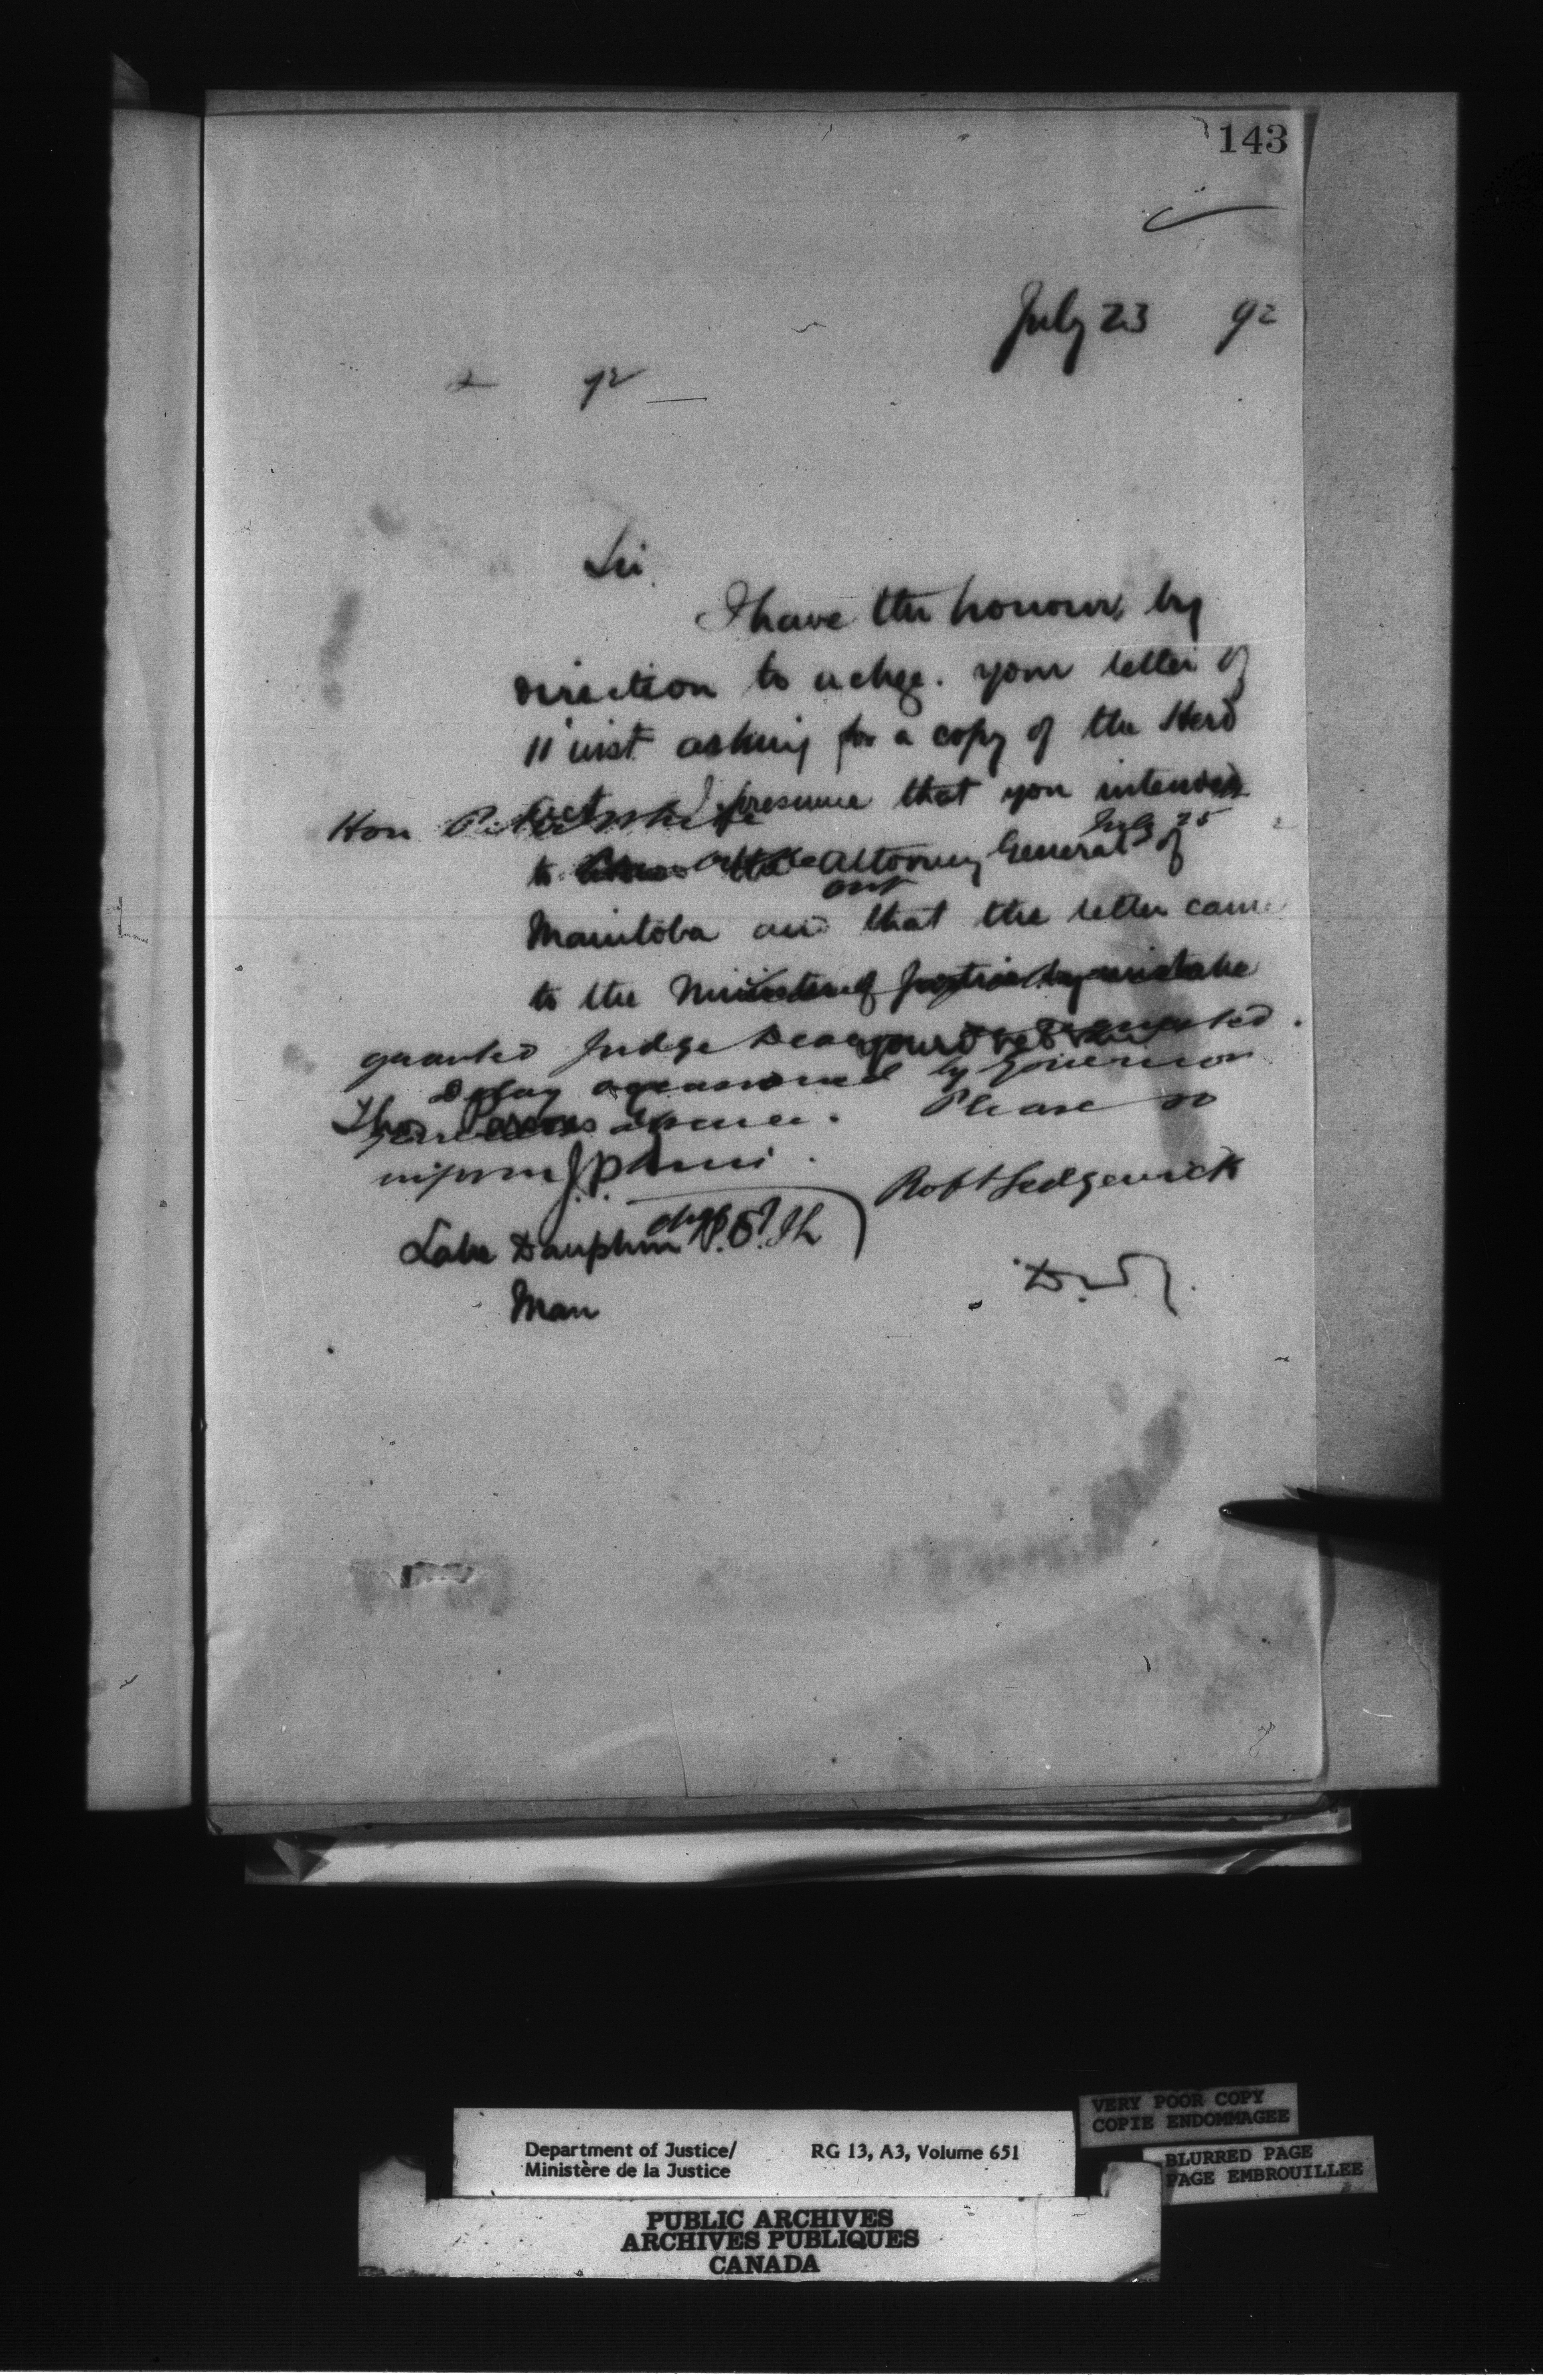 143
July 23 92
92
Sir
I have the honour, by
direction to ackge. your letter of
11 inst asking for a copy of the Herd
Act I presume that you intended
Hon Peter White
July 25
to Attorney General of
out
Manitoba and that the letter came
to the Minister of Justice by mistake
granted Judge requested.
Delay occasioned by Governor
Generals absence. Please so
Thos
inform J.P.
Robt Sedgewick
Lake Dauphin
D.M.J.
Man
Department of Justice/
Ministère de la Justice
RG 13, A3, Volume 651
VERY POOR COPY
COPIE ENDOMMAGEE
BLURRED PAGE
PAGE EMBROUILLEE
PUBLIC ARCHIVES
ARCHIVES PUBLIQUES
CANADA